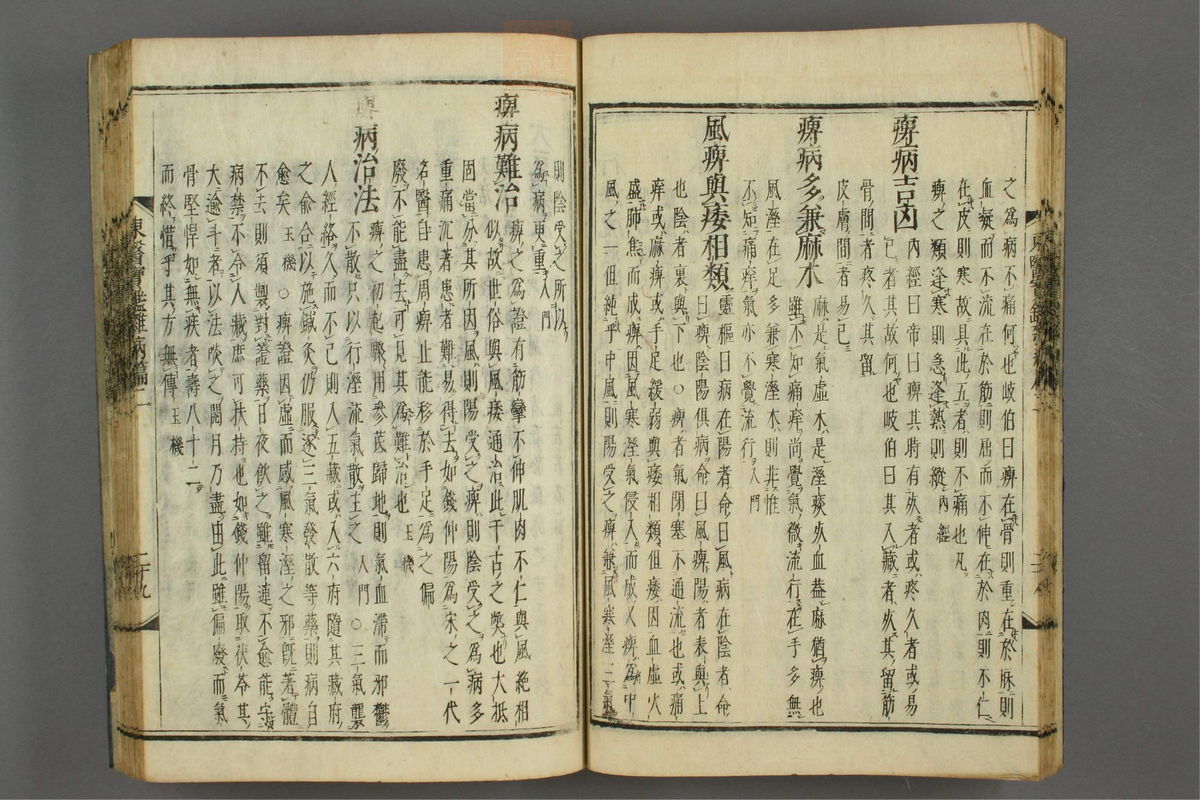 之爲病不痛何也岐伯曰痺在骨則重在於脉則
血凝而不流在於筋則屈而不伸在於肉則不仁
在皮則寒故具此五者則不痛也凡
痺之類逢寒則急逢熱則縱內經
痺病吉凶內經曰帝曰痺其時有死者或疼久者或易
已者其故何也岐伯曰其入藏者死其留筋
骨間者疼久其留
皮膚間者易已
痺病多兼麻木麻是氣虛木是溼痰死血葢麻猶痺也
雖不知痛痒尚覺氣微流行在手多無
風溼在足多兼寒溼木則非惟
不知痛痒氣亦不覺流行入門
風痺與痿相類靈樞曰病在陽者命曰風病在陰者命
曰痺陰陽俱病命曰風痺陽者表與上
也陰者裏與下也○痺者氣閉塞不通流也或痛
痒或麻痺或手足緩弱與痿相類但痿因血虛火
盛肺焦而成痺因風寒溼氣侵入而成又痺爲中
風之一但純乎中風則陽受之痺兼風寒溼三氣
則陰受之所以
爲病更重入門
痺病難治痺之爲證有筋攣不伸肌肉不仁與風絶相
似故世俗與風痿通治此千古之獘也大抵
固當分其所因風則陽受之痺則陰受之爲病多
重痛沉著患者難易得去如錢仲陽爲宋之一代
名醫自患周痺止能移於手足爲之偏
廢不能盡去可見其爲難治也玉機
痺病治法痺之初起驟用參芪歸地則氣血滯而邪鬱
不散只以行溼流氣散主之入門○三氣襲
人經絡久而不已則入五藏或入六府隨其藏府
之俞合以施鍼灸仍服逐三氣發散等藥則病自
愈矣玉機○痺證因虛而感風寒溼之邪旣著體
不去則須製對證藥日夜飮之雖留連不愈能守
病禁不令入藏庶可扶持也如錢仲陽取茯苓其
大逾斗者以法啖之閱月乃盡由此雖偏廢而氣
骨堅悍如無疾者壽八十二
而終惜乎其方無傳玉機
東醫寶鑑雜病篇二
二十九